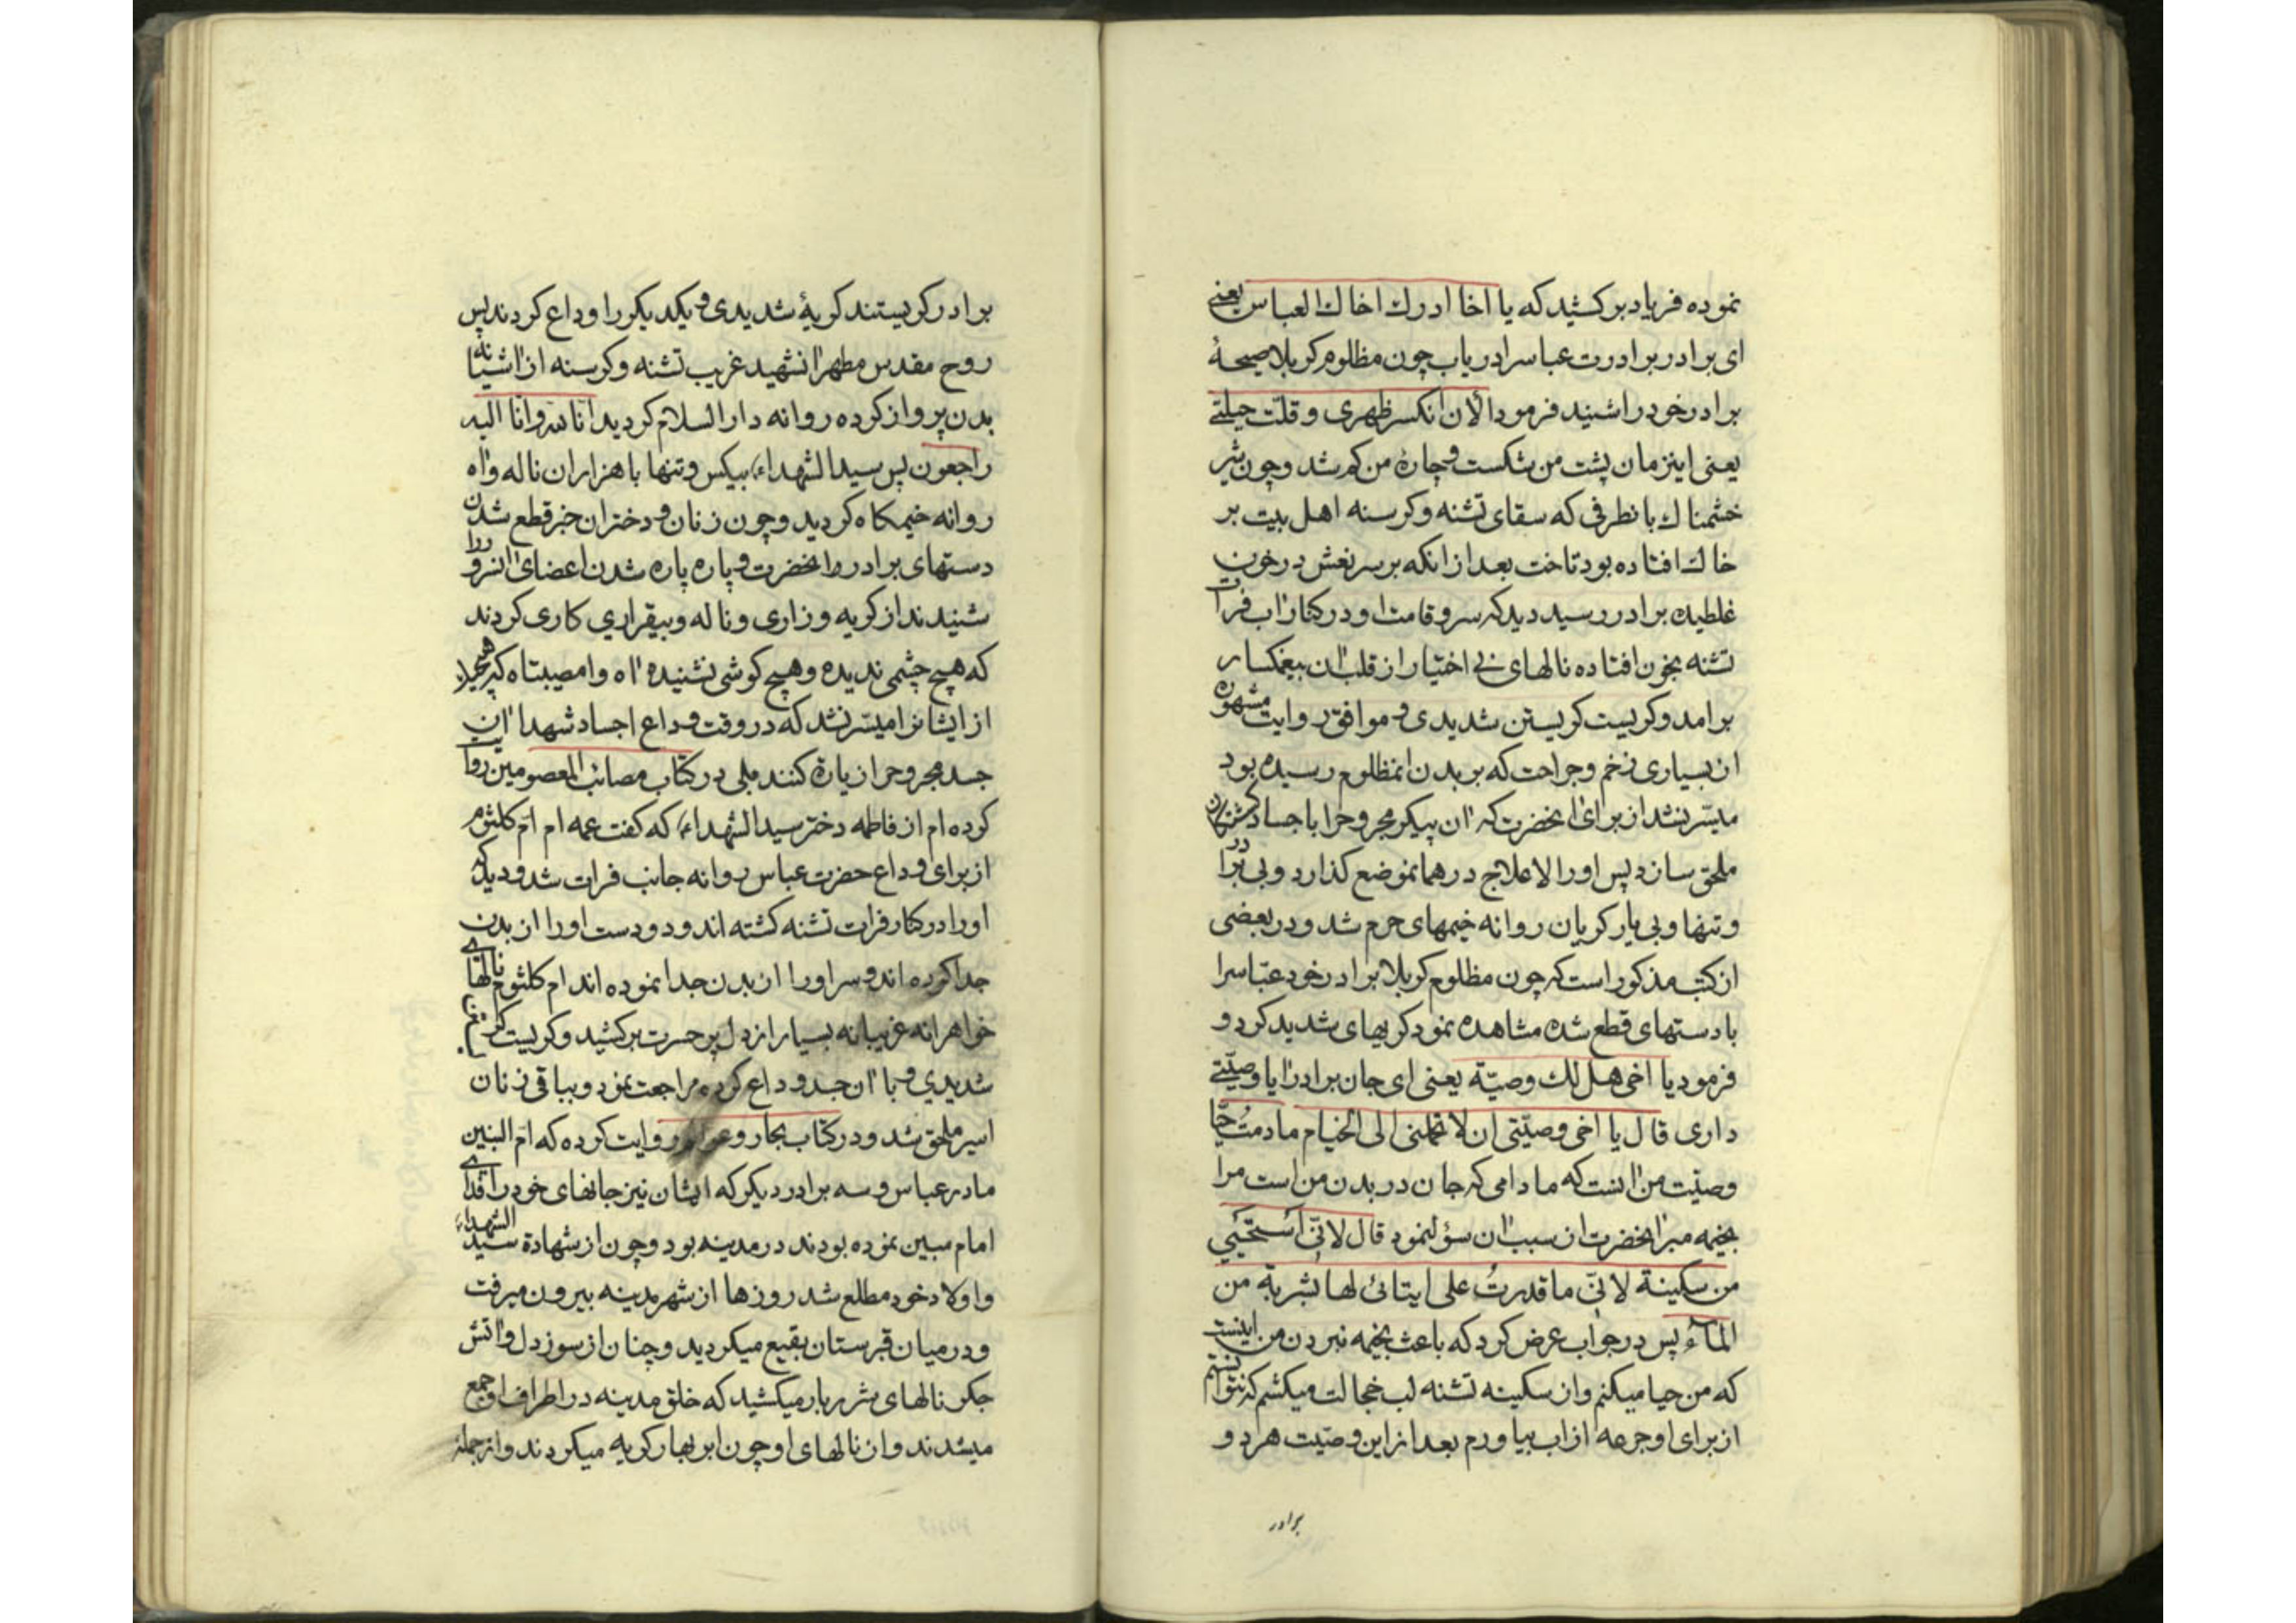 نموده فریاد برکشید که یا اخا ادرك اخاك العباس یعنی
ای برادر برادرت عباسرا دریاب چون مظلوم کربلا صیحهٔ
برادر خود را شنید فرمود الأن انکسر ظهری و قلّت حیلتی
یعنی اینزمان پشت من شکست و چارهٔ من کم شد و چون شیر
خشمناك بانطرفی که سقای تشنه و کرسنه اهل بیت بر
خاك افتاده بود تاخت بعد از انکه بر سر نعش در خون
غلطیده برادر رسید دید که سرو قامت او در کنار اب فرات
تشنه بخون افتاده نالهای بی اختیار از قلب ان بیغمکسار
برامد و کریست کریستن شدیدی و موافق روایت مشهوره
از بسیاری زخم و جراحت که بر بدن انمظلوم رسیده بود
میسّر نشد از برای انحضرت که ان پیکر مجروحرا باجساد کشتکان
ملحق سازد پس او را لاعلاج در همانموضع کذارد و بی برادر
و تنها و بی یار کریان روانه خیمهای حرم شد و در بعضی
از کتب مذکور است که چون مظلوم کربلا برادر خود عبّاسرا
با دستهای قطع شده مشاهده نمود کریهای شدید کرد و
فرمود یا اخی هل لك وصیّة یعنی ای جان برادر ایا وصیّتی
داری قال یا اخی وصیّتی ان لا تحملنی الی الخیام ما دمتُ حیّا
وصیّت من انست که ما دامی که جان در بدن من است مرا
بخیمه مبر انحضرت از سبب ان سؤل نمود قال لانّی استحیی
من سکینة لانّی ما قدرتُ علی ایتائی لها بشربة من
المآء پس در جواب عرض کرد که باعث بخیمه نبردن من اینست
که من حیا میکنم و از سکینه تشنه لب خجالت میکشم که نتوانستم
از برای او جرعه از اب بیاورم بعد از این وصیّت هر دو
برادر
برادر کریستند کریهٔ شدیدی و یکدیکر را وداع کردند پس
روح مقدس مطهر انشهید غریب تشنه و کرسنه از اشیانه
بدن پرواز کرده روانه دار السلام کردید انا لله و انا الیه
راجعون پس سید الشهداء بیکس و تنها با هزاران ناله و اه
روانه خیمکاه کردید و چون زنان و دختران خبر قطع شدن
دستهای برادر انحضرت و پاره پاره شدن اعضای انسرو را
شنیدند از کریه و زاری و ناله و بیقراری کاری کردند
که هیچ چشمی ندیده و هیچ کوشی نشنیده اه وا مصیبتاه که هیچیك
از ایشانرا میسّر نشد که در وقت وداع اجساد شهدا ان
جسد مجروحرا زیارة کنند بلی در کتاب مصائب المعصومین روایت
کرده ام از فاطمه دختر سید الشهداء که کفت عمه ام امّ کلثوم
از برای وداع حضرت عباس روانه جانب فرات شد و دید که
او را در کنار فرات تشنه کشته اند و دو دست او را از بدن
جدا کرده اند و سر او را از بدن جدا نموده اند ام کلثوم نالهای
خواهرانه غریبانه بسیار از دل پر حسرت برکشید و کریست
شدیدی و با ان جسد وداع کرده مراجعت نمود و بباقی زنان
اسیر ملحق شد و در کتاب بحار و عوالم روایت کرده که امّ البنین
مادر عباس و سه برادر دیکر که ایشان نیز جانهای خود را فدای
امام مبین نموده بودند در مدینه بود و چون از شهادة سید الشهداء
و اولاد خود مطلع شد روزها از شهر مدینه بیرون میرفت
و در میان قبرستان بقیع میکردید و چنان از سوز دل و اتش
جکر نالهای شرربار میکشید که خلق مدینه در اطراف او جمع
میشدند و از نالهای او چون ابر بهار کریه میکردند و از جمله